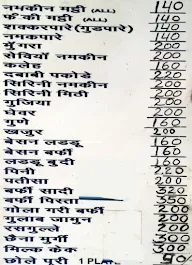 नमकीन गट्टी (ALL) 140
फीकी गट्टी (ALL) 140
शक्करपारे (गुडपारे) 140
नमकपारे 140
मुँगरा 200
सेवियाँ नमकीन 200
कलेह 160
नवाबी पकोडे 220
सिरिनी नमकीन 200
सिरिनी मिठी 200
गुजिया 200
घेवर 200
गुणे 160
खजुर 200
बेसन लडडू 160
बेसन बर्फी 160
लडडू बुदी 160
पिनी 220
पतीसा 200
बर्फी सादी 320
बर्फी पिस्ता 350
गोला गरी बर्फी 200
गुलाब जामुन 200
रसगुल्ले 200
छैना मुर्गी 300
मिल्क केक 300
छोले पूरी 1 PLA